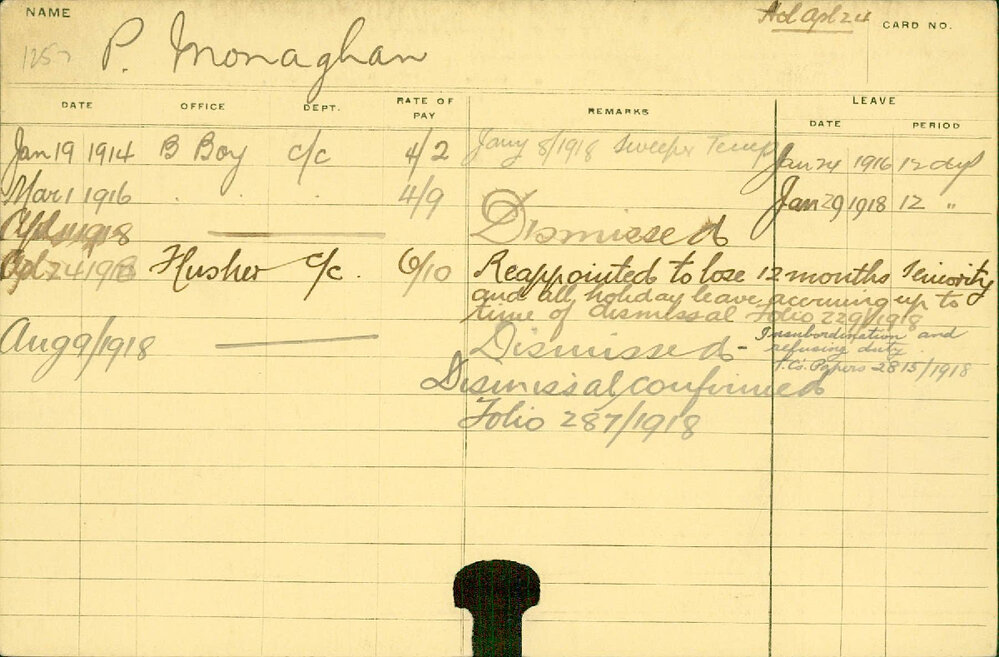 NAME
Hol Apl 24
CARD NO.
1257 P. Monaghan
DATE OFFICE DEPT. RATE OF PAY REMARKS LEAVE
DATE PERIOD
Jan 19 1914 B Boy c/c 4/2 Jany 8/1918 Sweeper Temp Jan 24 1916 12 dys
Mar 1 1916 . . . 4/9 Jan 29 1918 12 "
1918 Dismissed
Apl 24 1918 Husher c/c. 6/10 Reappointed to lose 12 months seniority
and all holiday leave accruing up to
time of dismissal Folio 229/1918
Aug 9/1918 Dismissed - Insubordination and
refusing duty.
T.C's. Papers 2815/1918
Dismissal confirmed
Folio 287/1918